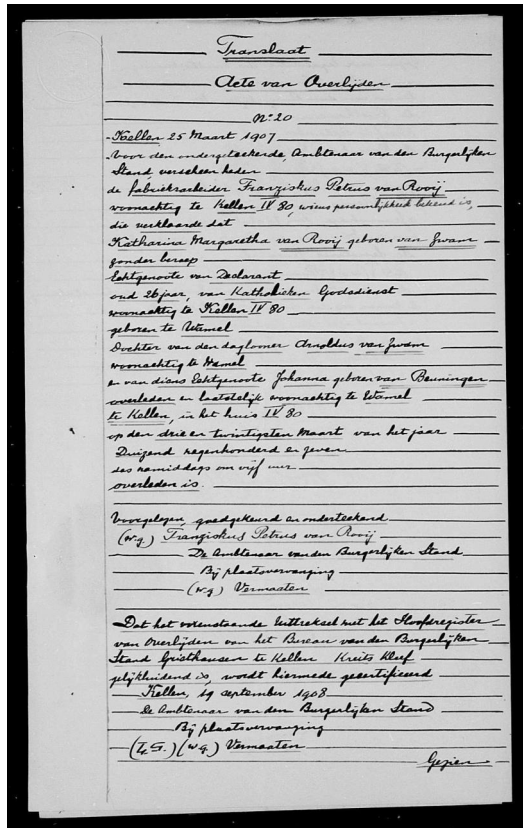 Translaat
Acte van Overlijden
No. 20
Kellen 25 Maart 1907
Voor den ondergeteekende, Ambtenaar van den Burgerlyken
Stand verscheen heden
de fabrieksarbeider Franziskus Petrus van Rooij
woonachtig te Kellen IV 80, wiens persoonlijkheid bekend is,
die verklaarde dat
Katharina Margaretha van Rooij geboren van Zwam
zonder beroep
Echtgenoote van Declarant
oud 26 jaar, van Katholieken Godsdienst
woonachtig te Kellen IV 80
geboren te Wamel
Dochter van den daglooner Arnoldus van Zwam
woonachtig te Wamel
en van diens Echtgenoote Johanna geboren van Beuningen
overleden en laatstelijk woonachtig te Wamel
te Kellen, in het huis IV 80
op den drie en twintigsten Maart van het jaar
Duizend negenhonderd en zeven
des namiddags om vijf uur
overleden is.
Voorgelezen, goedgekeurd en onderteekend
(w.g.) Franziskus Petrus van Rooij
De Ambtenaar van den Burgerlijken Stand
Bij plaatsvervanging
(w.g.) Vermaaten
Dat het vorenstaande Uittreksel met het Hoofdregister
van Overlijden van het Bureau van den Burgerlijken
Stand Griethausen te Kellen Kreits Kleef
gelijkluidend is, wordt hiermede gecertificeerd
Kellen, 19 September 1908
De Ambtenaar van den Burgerlijken Stand
Bij plaatsvervanging
(L.S.) (w.g.) Vermaaten
Gezien